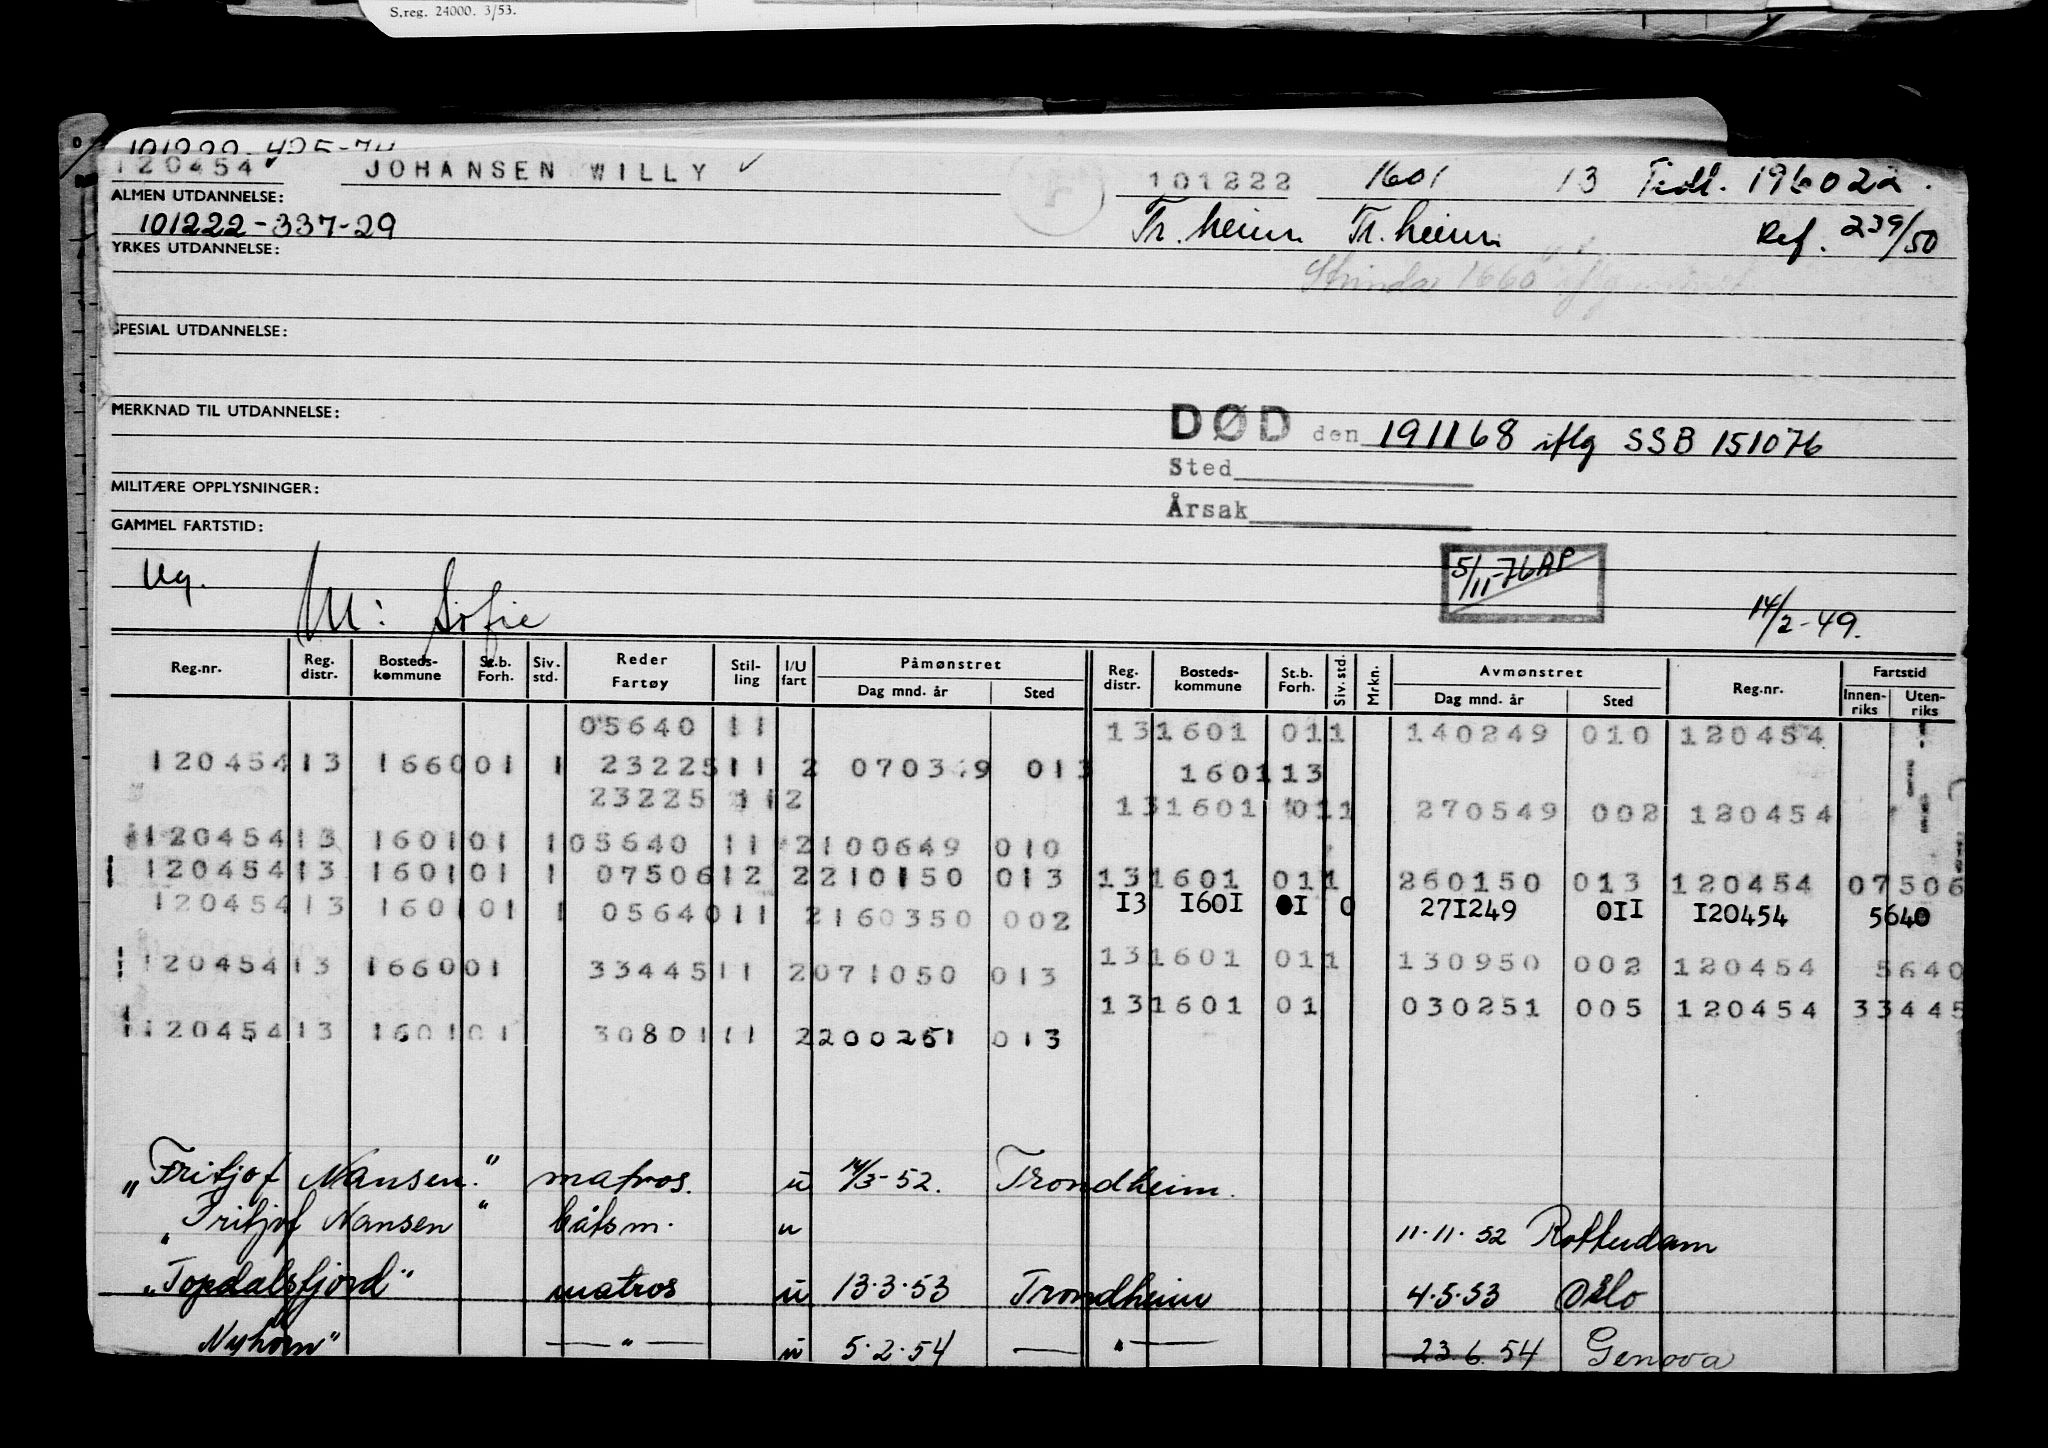 S.reg. 24000. 3/53.
120454 JOHANSEN WILLY 101222 1601 13 Tidl. 196022.
ALMEN UTDANNELSE:
101222-337-29 Tr.heim Tr.heim Ref. 239/50
YRKES UTDANNELSE:
Strinda 1660
SPESIAL UTDANNELSE:
MERKNAD TIL UTDANNELSE:
DØD den 191168 iflg SSB 151076
Sted
MILITÆRE OPPLYSNINGER:
Årsak
GAMMEL FARTSTID:
Ug. M: Sofie
5/11-76 AP
14/2-49.
Reg.nr. Reg. distr. Bosteds-kommune St.b. Forh. Siv. std. Reder Fartøy Stil-ling I/U fart Påmønstret Dag mnd. år Sted Reg. distr. Bosteds-kommune St.b. Forh. Siv. std. Mrkn. Avmønstret Dag mnd. år Sted Reg.nr. Fartstid Innen-riks Uten-riks
05640 11 13 1601 01 1 140249 010 120454
120454 13 1660 01 1 23225 11 2 0703 9 013 1601 13
23225 11 2 13 1601 01 1 270549 002 120454
120454 13 1601 01 1 05640 11 2 100649 010
120454 13 1601 01 1 07506 12 2 210150 013 13 1601 01 1 260150 013 120454 07506
120454 13 1601 01 1 05640 11 2 160350 002 I3 I60I 0I 0 27I249 0II I20454 5640
120454 13 1660 01 33445 11 2 071050 013 13 1601 01 1 130950 002 120454 5640
13 1601 01 030251 005 120454 33445
120454 13 1601 01 30801 11 2 200251 013
"Fritjof Nansen." matros. u 14/3-52. Trondheim.
"Fritjof Nansen" båtsm. u 11.11.52 Rotterdam
"Topdalsfjord" matros u 13.3.53 Trondheim 4.5.53 Oslo
"Nyhorn" — " — u 5.2.54 — " — 23.6.54 Genova